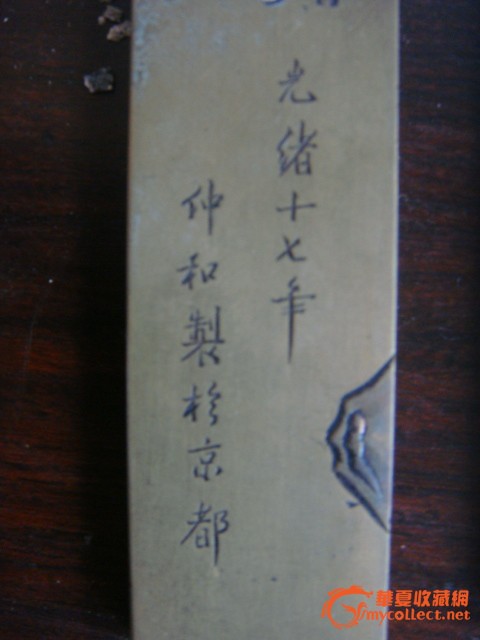 光緒十七年
仲和製於京都
華夏收藏網
mycollect.net